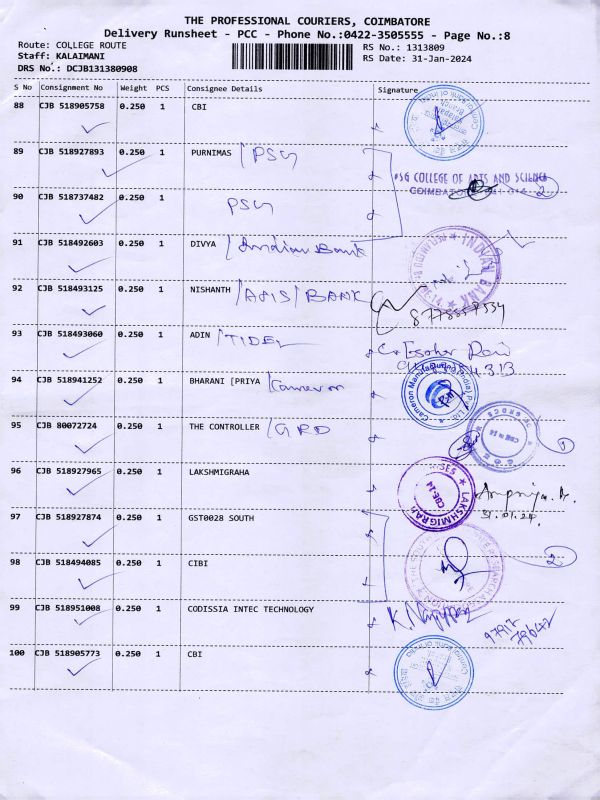 THE PROFESSIONAL COURIERS, COIMBATORE
Delivery Runsheet - PCC - Phone No.:0422-3505555 - Page No.:8
Route: COLLEGE ROUTE
RS No.: 1313809
Staff: KALAIMANI
RS Date: 31-Jan-2024
DRS No.: DCJB131380908
S No Consignment No Weight PCS Consignee Details Signature
88 CJB 518905758 0.250 1 CBI
89 CJB 518927893 0.250 1 PURNIMAS / PSG
PSG COLLEGE OF ARTS AND SCIENCE
COIMBATORE
2
90 CJB 518737482 0.250 1
PSG
91 CJB 518492603 0.250 1 DIVYA / Indian Bank
INDIAN BANK
92 CJB 518493125 0.250 1 NISHANTH / AXIS / BANK
93 CJB 518493060 0.250 1 ADIN / TIDEL
94 CJB 518941252 0.250 1 BHARANI [PRIYA / Cameron
Cameron Manufacturing (India) P. Ltd.
95 CJB 80072724 1 THE CONTROLLER / GRD
1
96 CJB 518927965 0.250 1 LAKSHMIGRAHA
LAKSHMIGRAH
CBE-14
31.01.24.
97 CJB 518927874 0.250 1 GST0028 SOUTH
98 CJB 518494085 0.250 1 CIBI
2
99 CJB 518951008 0.250 1 CODISSIA INTEC TECHNOLOGY
100 CJB 518905773 0.250 1 CBI